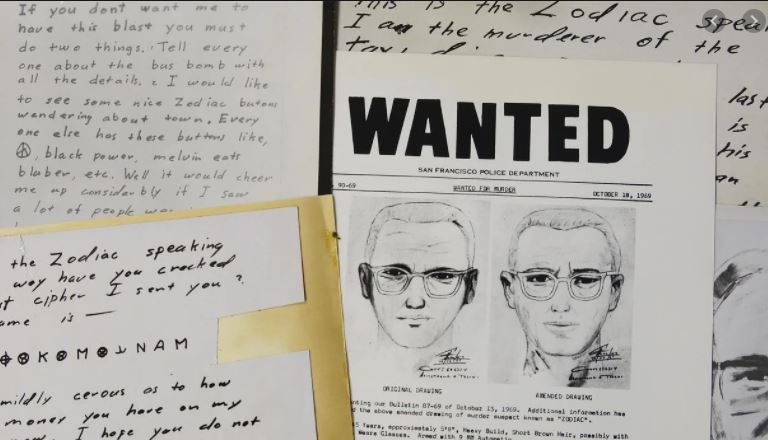 If you dont want me to
have this blast you must
do two things. Tell every
one about the bus bomb with
all the details. I would like
to see some nice Zodiac butons
wandering about town. Every
one else has these buttons like,
☮, black power, melvin eats
bluber, etc. Well it would cheer
me up considerbly if I saw
a lot of people
the Zodiac speaking
way have you cracked
cipher I sent you?
ame is —
K M N A M
mildly cerous as to how
money you have on my
I hope you do not
This is the Zodiac speak
I am the murderer of the
last
is
his
an
WANTED
SAN FRANCISCO POLICE DEPARTMENT
90-69 WANTED FOR MURDER OCTOBER 18, 1969
ORIGINAL DRAWING AMENDED DRAWING
enting our Bulletin 87-69 of October 13, 1969. Additional information has
the above amended drawing of murder suspect known as "ZODIAC".
5 Years, approximately 5'8", Heavy Build, Short Brown Hair, possibly with
Wears Glasses. Armed with 9 MM Automatic.